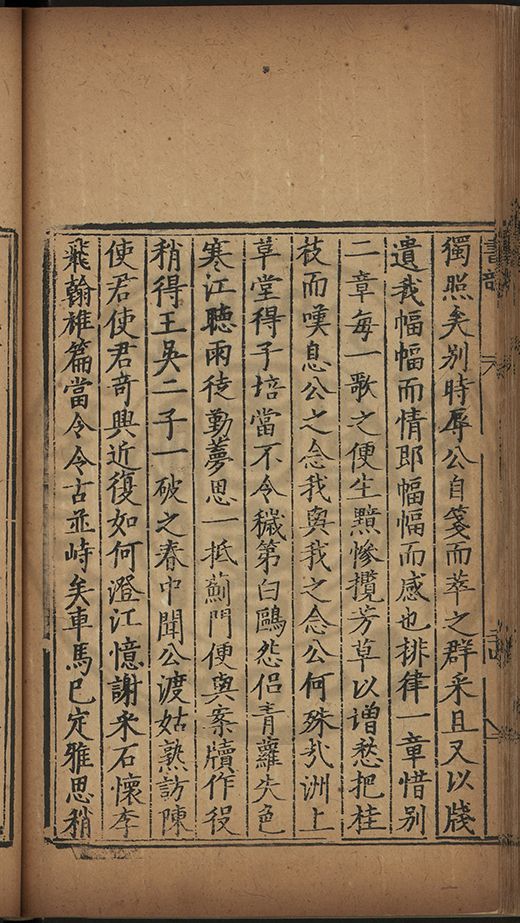 獨照矣別時辱公自箋而萃之群采且又以牋
遺我幅幅而情即幅幅而感也排律一章惜別
二章每一歌之便生黯慘攬芳草以增愁把桂
枝而嘆息公之念我與我之念公何殊哉洲上
草堂得子培當不令穢第白鷗怨侶青蘿失色
寒江聽雨徒勤夢思一抵薊門便與案牘作役
稍得王吳二子一破之春中聞公渡姑熟訪陳
使君使君奇興近復如何澄江憶謝采石懷李
飛翰椎篇當令今古並峙矣車馬已定雅思稍